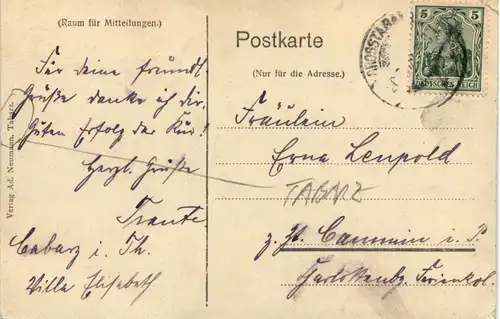 (Raum für Mitteilungen.)
Für deine freundl.
Grüße danke ich dir.
Guten Erfolg der Kur!
Herzl. Grüße
Traute.
Cabarz i. Th.
Villa Elisabeth
Verlag Ad. Neumann, Tabarz.
Postkarte
(Nur für die Adresse.)
5 5
DEUTSCHES REICH
Fräulein
Erna Leupold
TABARZ
z. Zt. Cammin i. P.
Charlottenbg. Ferienkol.